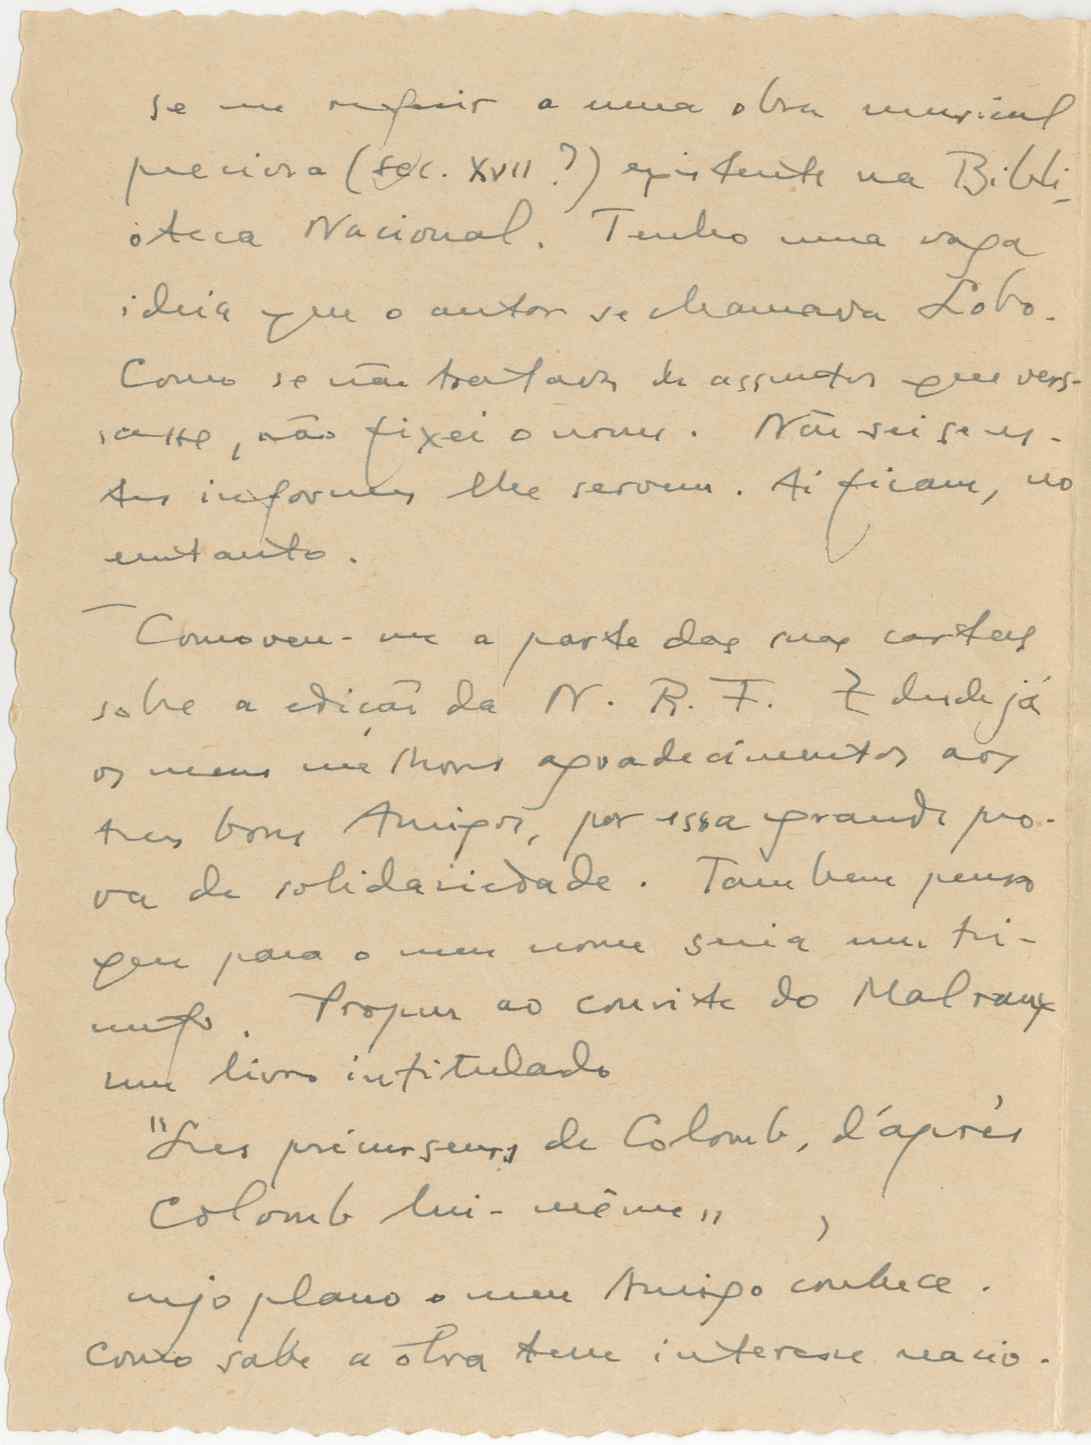 se me referir a uma obra musical
preciosa (sec. XVII ?) existente na Bibli-
oteca Nacional. Tenho uma vaga
ideia que o autor se chamava Lobo.
Como se não tratava de assuntos que vers-
sasse, não fixei o nome. Não sei se es-
tes informes lhe servem. Aí ficam, no
emtanto.
Comoveu-me a parte das suas cartas
sobre a edição da N. R. F. E desde já
os meus melhores agradecimentos aos
tres bons Amigos, por essa grande pro-
va de solidariedade. Tambem penso
que para o meu nome seria um tri-
unfo. Propus ao convite do Malraux
um livro intitulado
"Les précurseurs de Colomb, d'après
Colomb lui-même",
cujo plano o meu Amigo conhece.
Como sabe a obra tem interesse nacio-